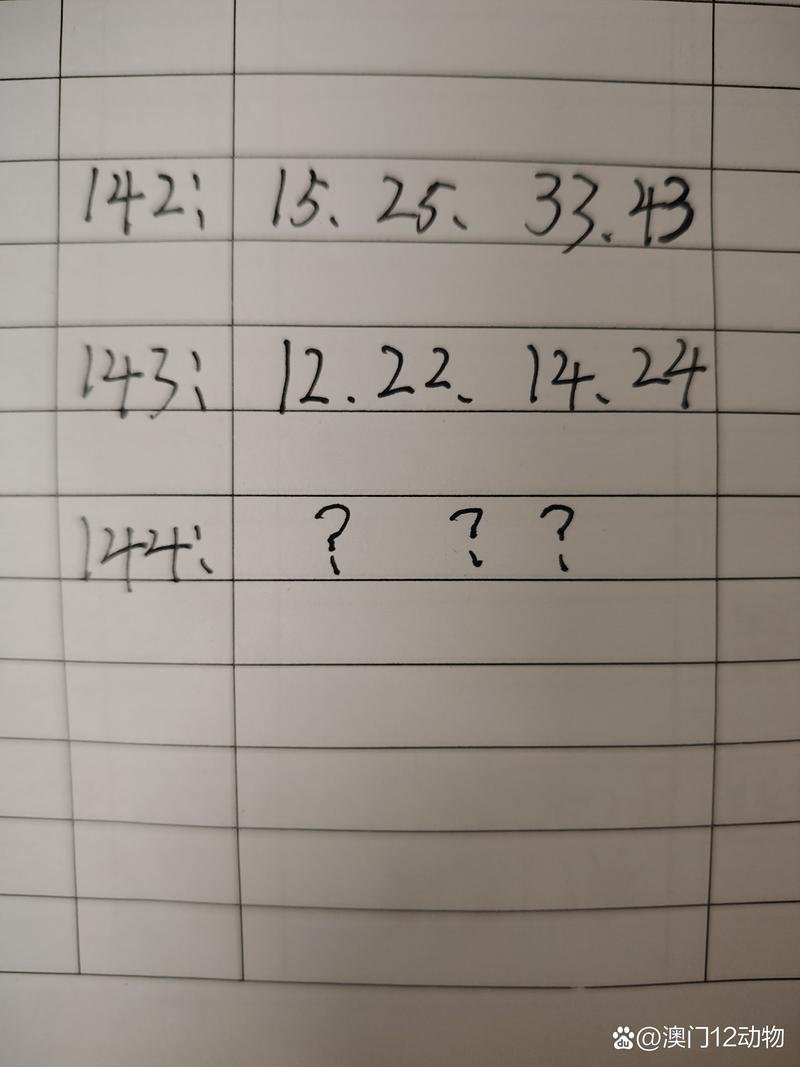 142: 15、25、33.43
143: 12.22、14、24
144: ? ? ?
du @澳门12动物